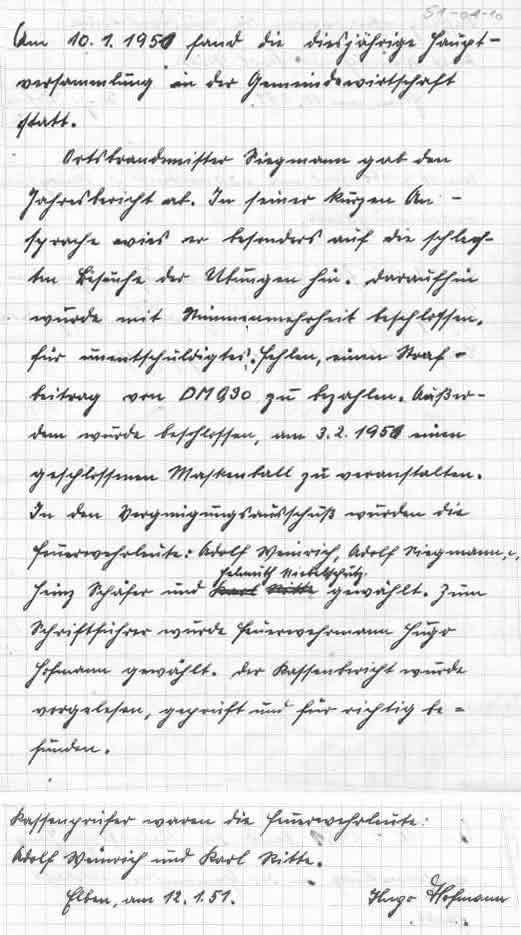 51-01-10
Am 10.1.1951 fand die diesjährige Haupt-
versammlung in der Gemeindewirtschaft
statt.
Ortsbrandmeister Siegmann gab den
Jahresbericht ab. In seiner kurzen An-
sprache wies er besonders auf die schlech-
ten Besuche der Übungen hin. Daraufhin
wurde mit Stimmenmehrheit beschlossen,
für unentschuldigtes Fehlen, einen Straf-
beitrag von DM 0,30 zu bezahlen. Außer-
dem wurde beschlossen, am 3.2.1951 einen
geschlossenen Maskenball zu veranstalten.
In den Vergnügungsausschuß wurden die
Feuerwehrleute: Adolf Weinrich, Adolf Siegmann,
Helmuth
Heinz Schäfer und Karl Ritte gewählt. Zum
Schriftführer wurde Feuerwehrmann Hugo
Hofmann gewählt. Der Kassenbericht wurde
vorgelesen, geprüft und für richtig be-
funden.
Kassenprüfer waren die Feuerwehrleute:
Adolf Weinrich und Karl Ritte.
Elben, am 12.1.51. Hugo Hofmann